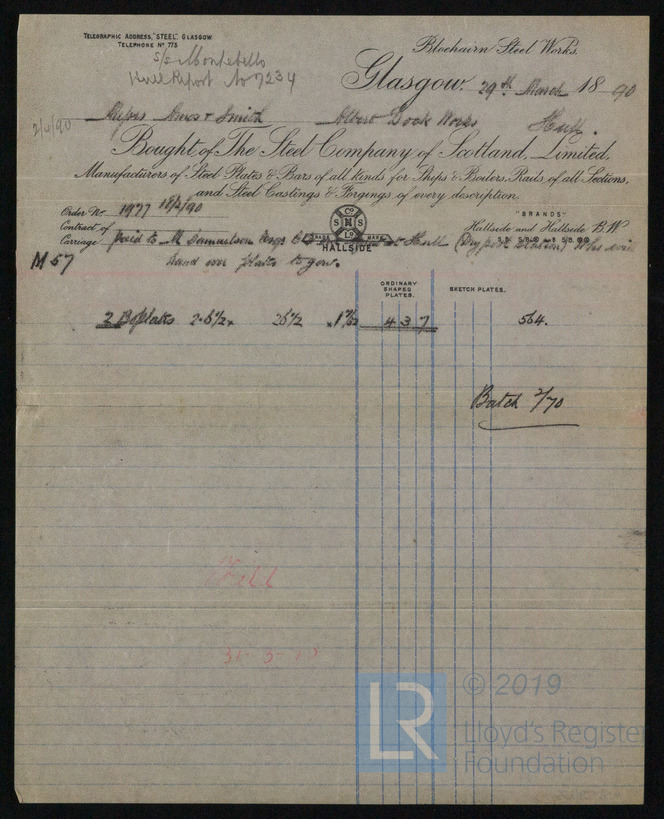 TELEGRAPHIC ADDRESS, "STEEL", GLASGOW
TELEPHONE Nº 773
Blochairn Steel Works.
S/S Montebello
Hull Report No 7234
Glasgow. 29th March 1890
2/4/90
Messrs Amos & Smith Albert Dock Works Hull.
Bought of The Steel Company of Scotland, Limited,
Manufacturers of Steel Plates & Bars of all kinds for Ships & Boilers, Rails of all Sections,
and Steel Castings & Forgings of every description.
Order No 1977
"BRANDS"
Contract of
Hallside and Hallside B.W
Carriage paid to M Samuelson Hull who will
TRADE MARK
HALLSIDE
M57 hand over plates to you.
ORDINARY SHAPED PLATES.
SKETCH PLATES.
2 plates 2-6½ x 26½ 437 564.
Batch 2/70
31-3-90
LR
© 2019
Lloyd's Register
Foundation